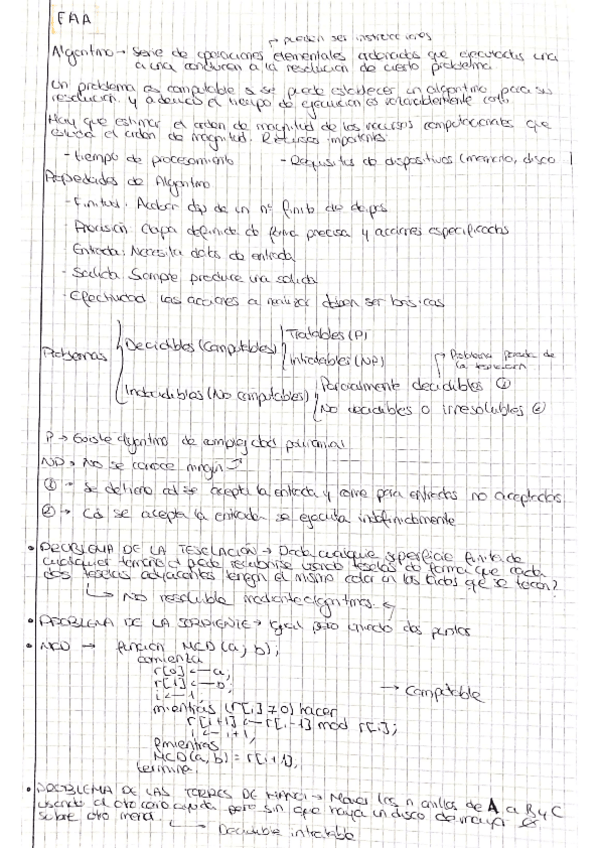 FAA
→ pueden ser instrucciones
Algoritmo → Serie de operaciones elementales adecuadas que ejecutadas una
a una conducen a la resolución de cierto problema
Un problema es computable si se puede establecer un algoritmo para su
resolución y además el tiempo de ejecución es corto
Hay que estimar el orden de magnitud de los recursos computacionales que
el orden de magnitud. Recursos importantes:
- tiempo de procesamiento - Requisitos de dispositivos (memoria, disco
Propiedades de Algoritmo
- Finitud. Acabar dsp de un nº finito de
- Precisión. definida de forma precisa y acciones especificadas
Entrada: Necesita datos de entrada
- Salida. Siempre produce una salida
- Efectividad Las acciones a realizar deben ser básicas
Problemas
Decidibles (Computables)
Tratables (P)
Intratables (NP)
→ Problema parada de
la
Indecidibles (No computables)
Parcialmente decidibles ①
No decidibles o irresolubles ②
P → Existe algoritmo de complejidad polinomial
NP → No se conoce ningún
① → Se detiene si se acepta la entrada y para entradas no aceptadas
② → se acepta la entrada se ejecuta indefinidamente
• PROBLEMA DE LA TESELACIÓN → Dada cualquier superficie finita de
cualquier tamaño ¿puede recubrirse usando teselas de forma que cada
dos teselas adyacentes tengan el mismo color en los lados que se tocan?
→ No resoluble mediante algoritmos
• PROBLEMA DE LA SERPIENTE → Igual pero uniendo dos puntos
• MCD → función MCD (a, b);
comienza
r[0] ← a;
r[1] ← b;
i ← 1
mientras (r[i] ≠ 0) hacer
r[i+1] ← r[i-1] mod r[i];
i ← i+1;
fmientras
MCD(a, b) = r[i-1];
termina.
→ Computable
• PROBLEMA DE LAS TORRES DE HANOI → Mover los n anillos de A a B y C
usando el otro como pero sin que haya un disco de mayor
sobre otro menor.
→ Decidible intratable